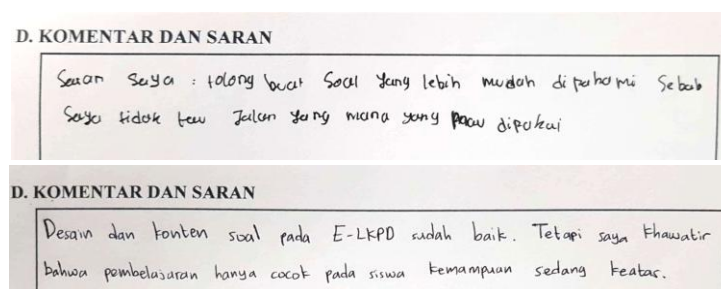 D. KOMENTAR DAN SARAN
Saran saya : tolong buat Soal yang lebih mudah dipahami Sebab
Saya tidak tau Jalan yang mana yang dipakai
D. KOMENTAR DAN SARAN
Desain dan konten soal pada E-LKPD sudah baik. Tetapi saya khawatir
bahwa pembelajaran hanya cocok pada siswa kemampuan sedang keatas.